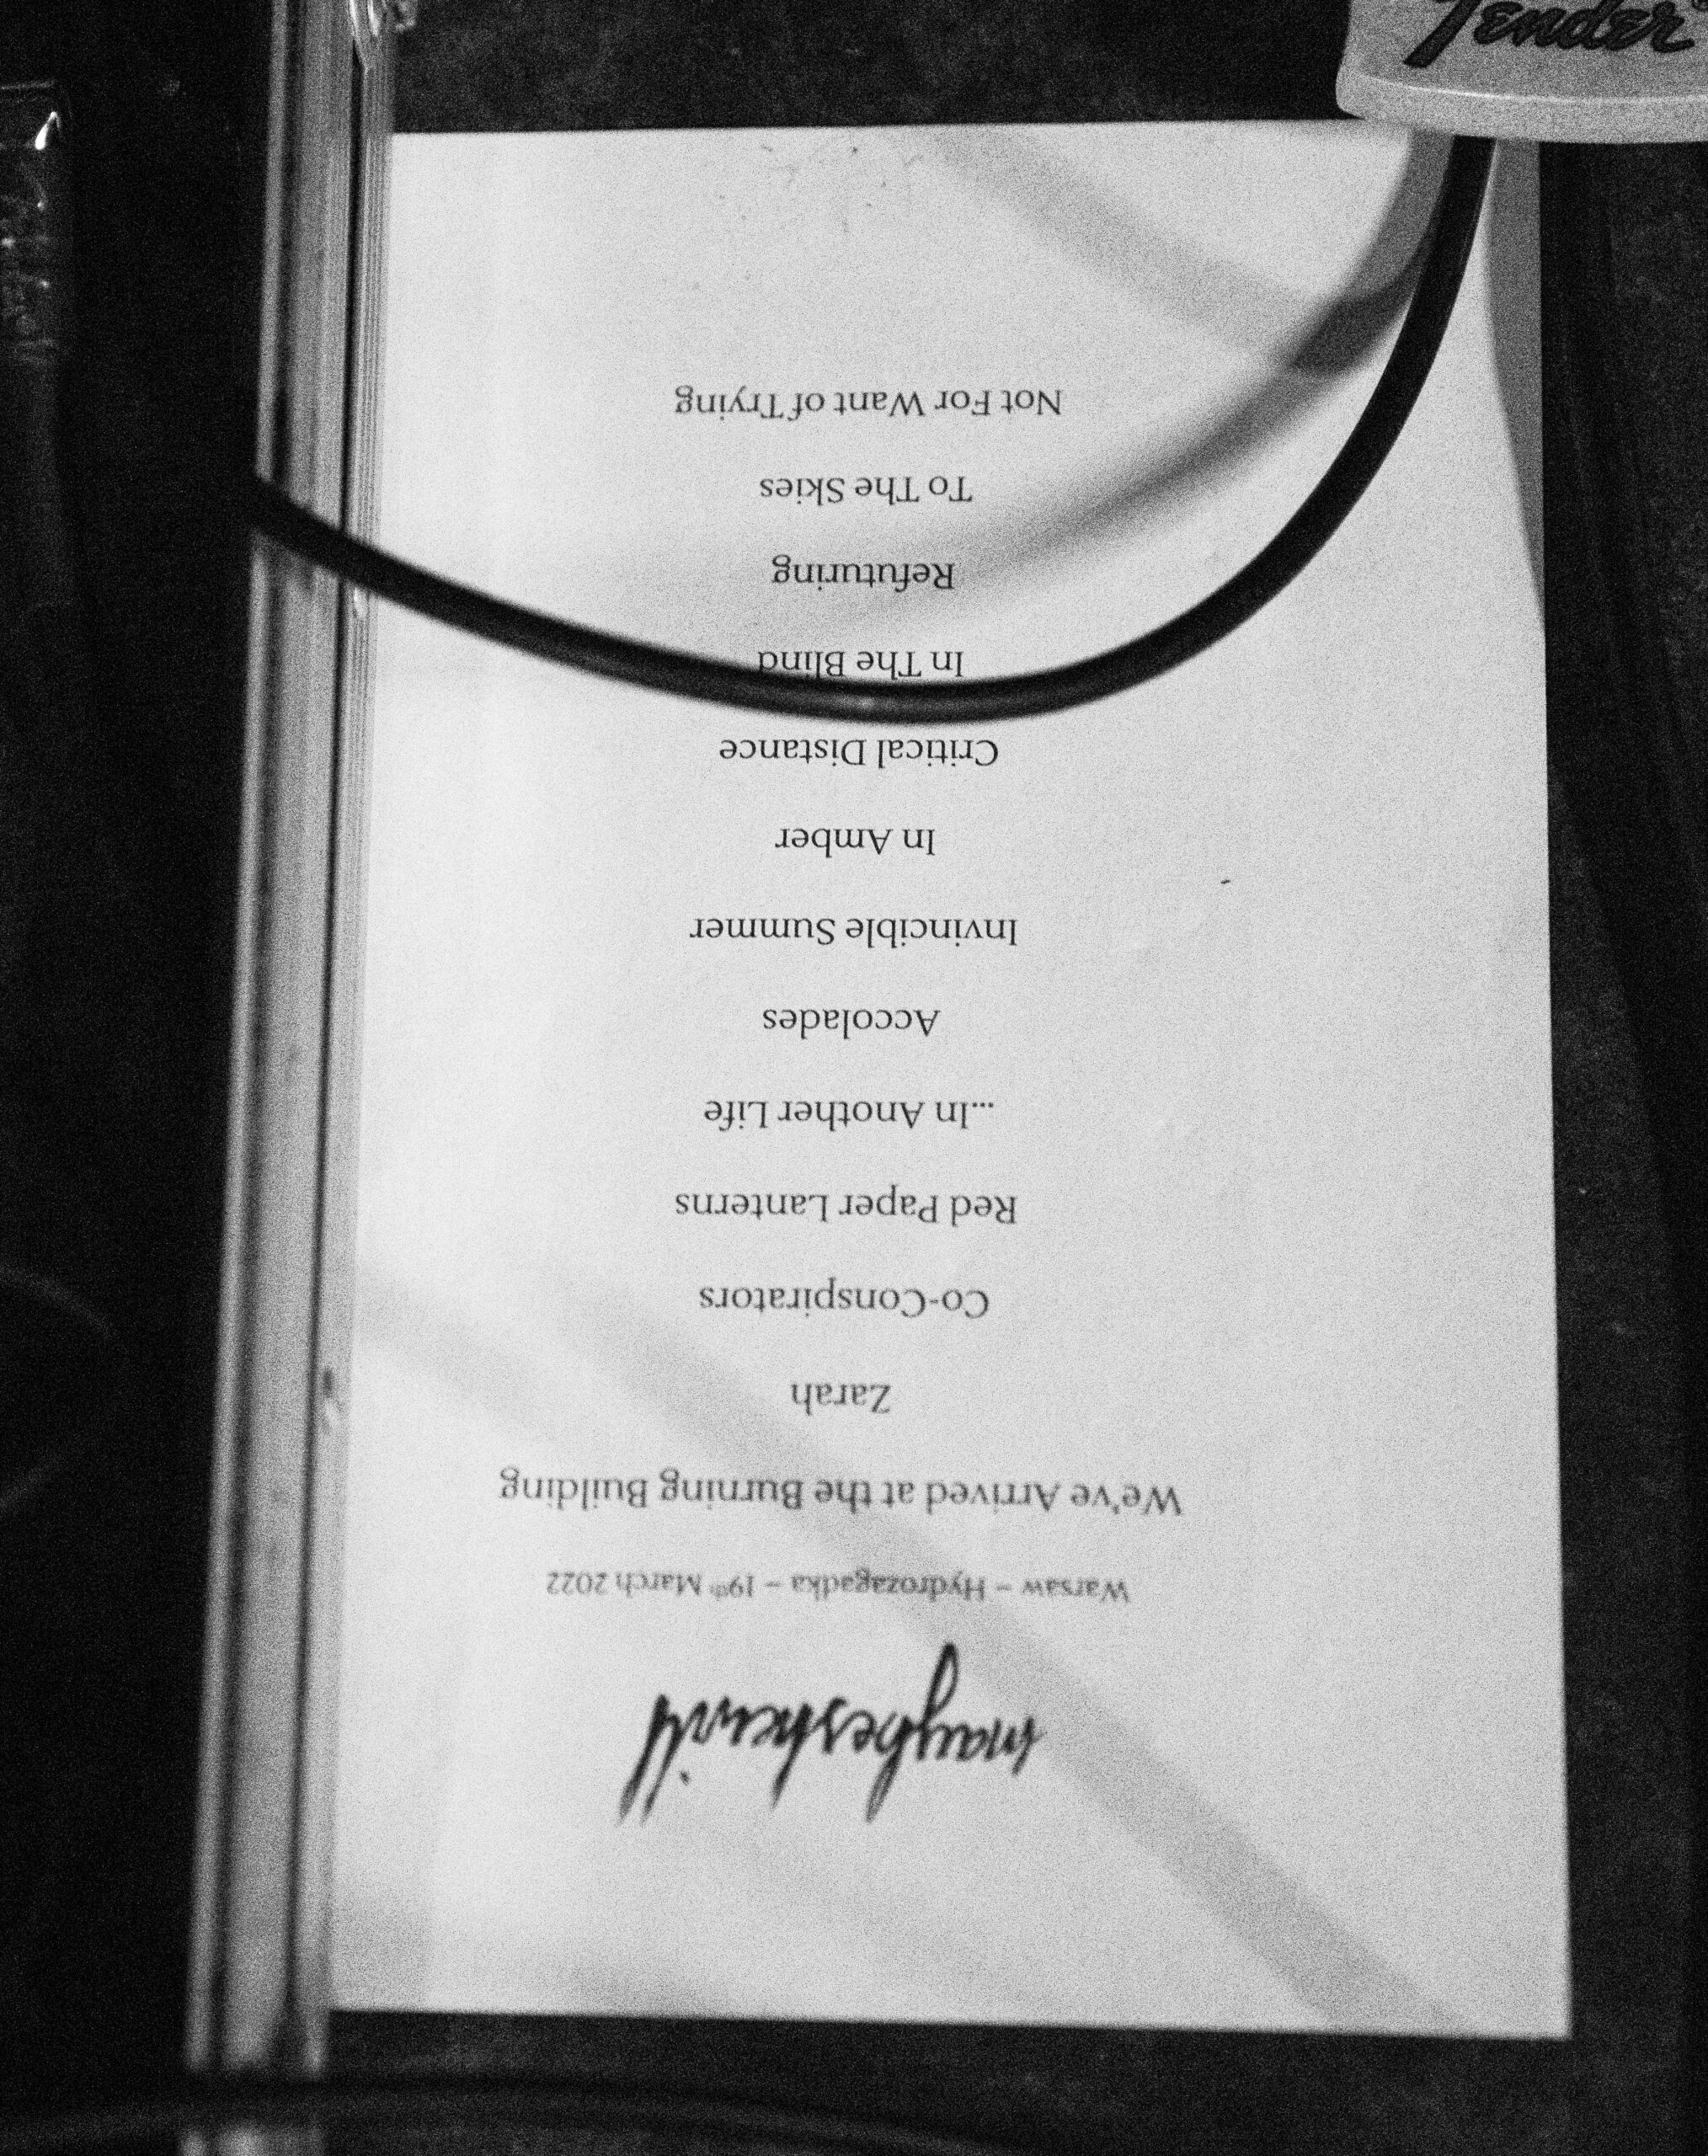 maybeshewill
Warsaw – Hydrozagadka – 19th March 2022
We've Arrived at the Burning Building
Zarah
Co-Conspirators
Red Paper Lanterns
...In Another Life
Accolades
Invincible Summer
In Amber
Critical Distance
In The Blind
Refuturing
To The Skies
Not For Want of Trying
Fender